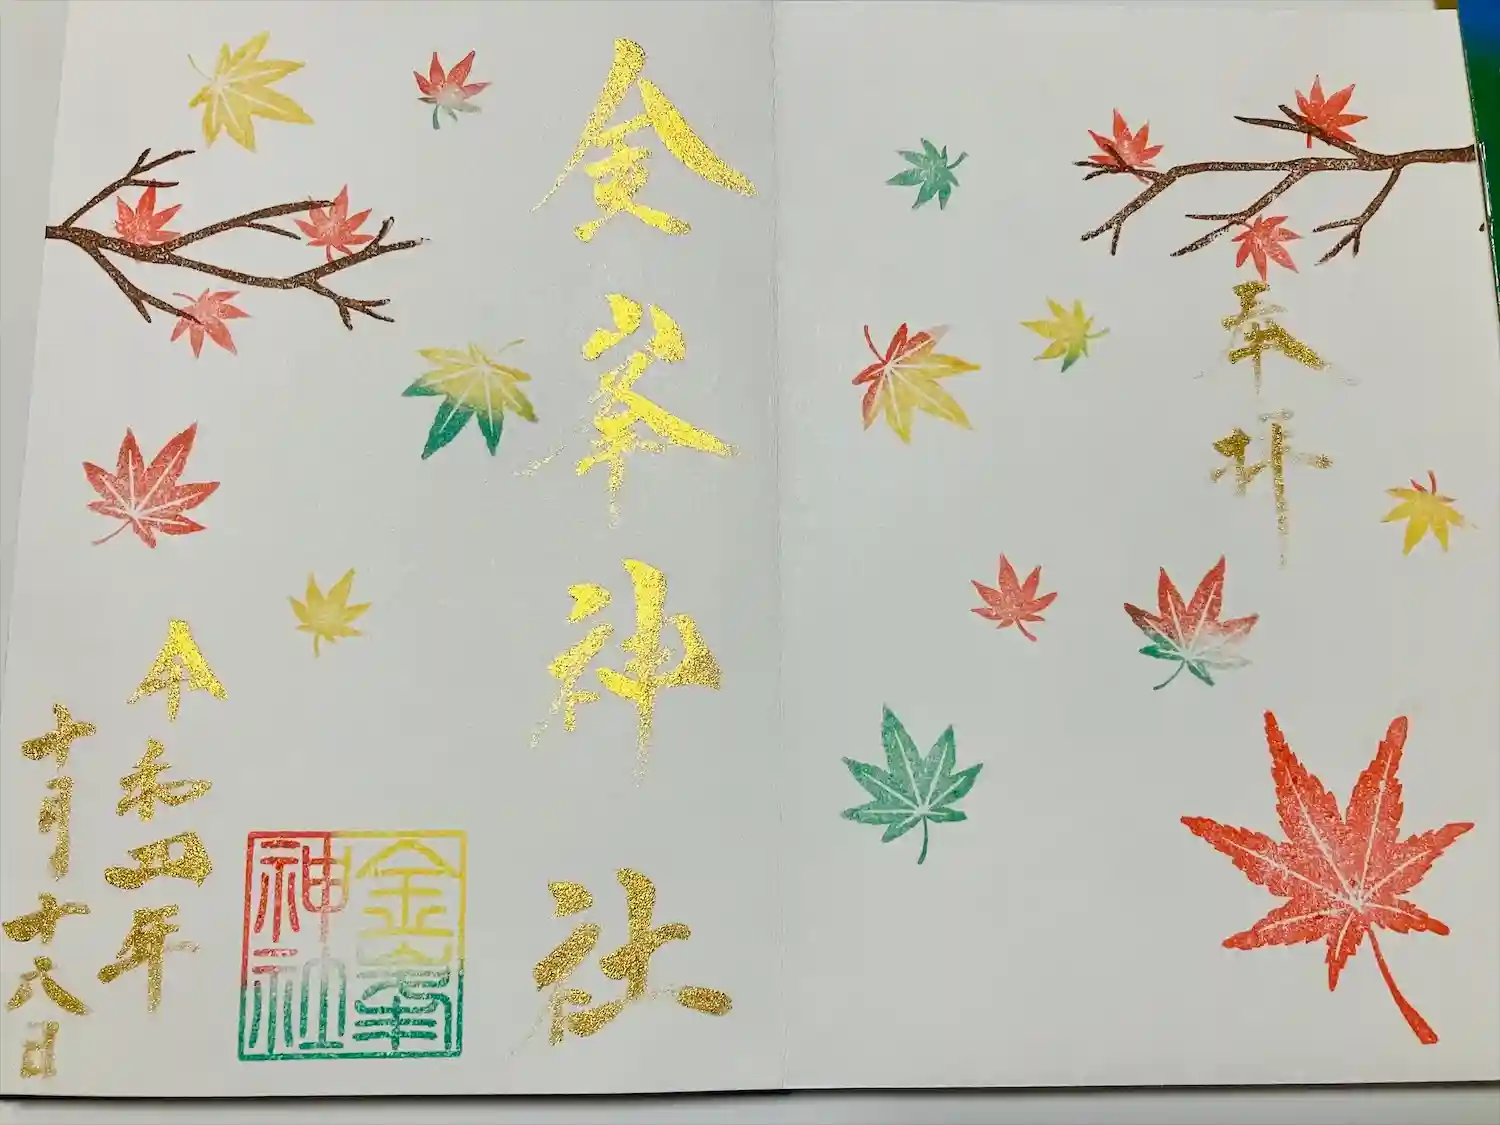 奉拝
金峯神社
金峯
神社
令和四年
十月十八日